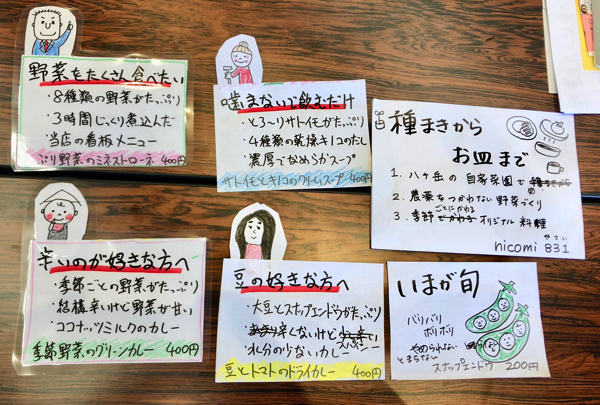 野菜をたくさん食べたい
・8種類の野菜がたっぷり
・3時間じっくり煮込んだ
・当店の看板メニュー
ぷり野菜のミネストローネ 400円
噛まないで飲むだけ
・とろ〜りサトイモがたっぷり
・4種類の乾燥キノコのだし
・濃厚でなめらかスープ
サトイモとキノコのクリームスープ 400円
種まきから
お皿まで
1. 八ヶ岳の自家菜園で
2. 農薬をつかわない野菜づくり
3. 季節ごとにかわるオリジナル料理
やさい
nicomi 831
辛いのが好きな方へ
・季節ごとの野菜がたっぷり
・結構辛いけど野菜が甘い
・ココナッツミルクのカレー
季節野菜のグリーンカレー 400円
豆の好きな方へ
・大豆とスナップエンドウがたっぷり
・辛くないけどスパイシー
・水分の少ないカレー
豆とトマトのドライカレー 400円
いまが旬
バリバリ
ボリボリ
とまらない
スナップエンドウ 200円